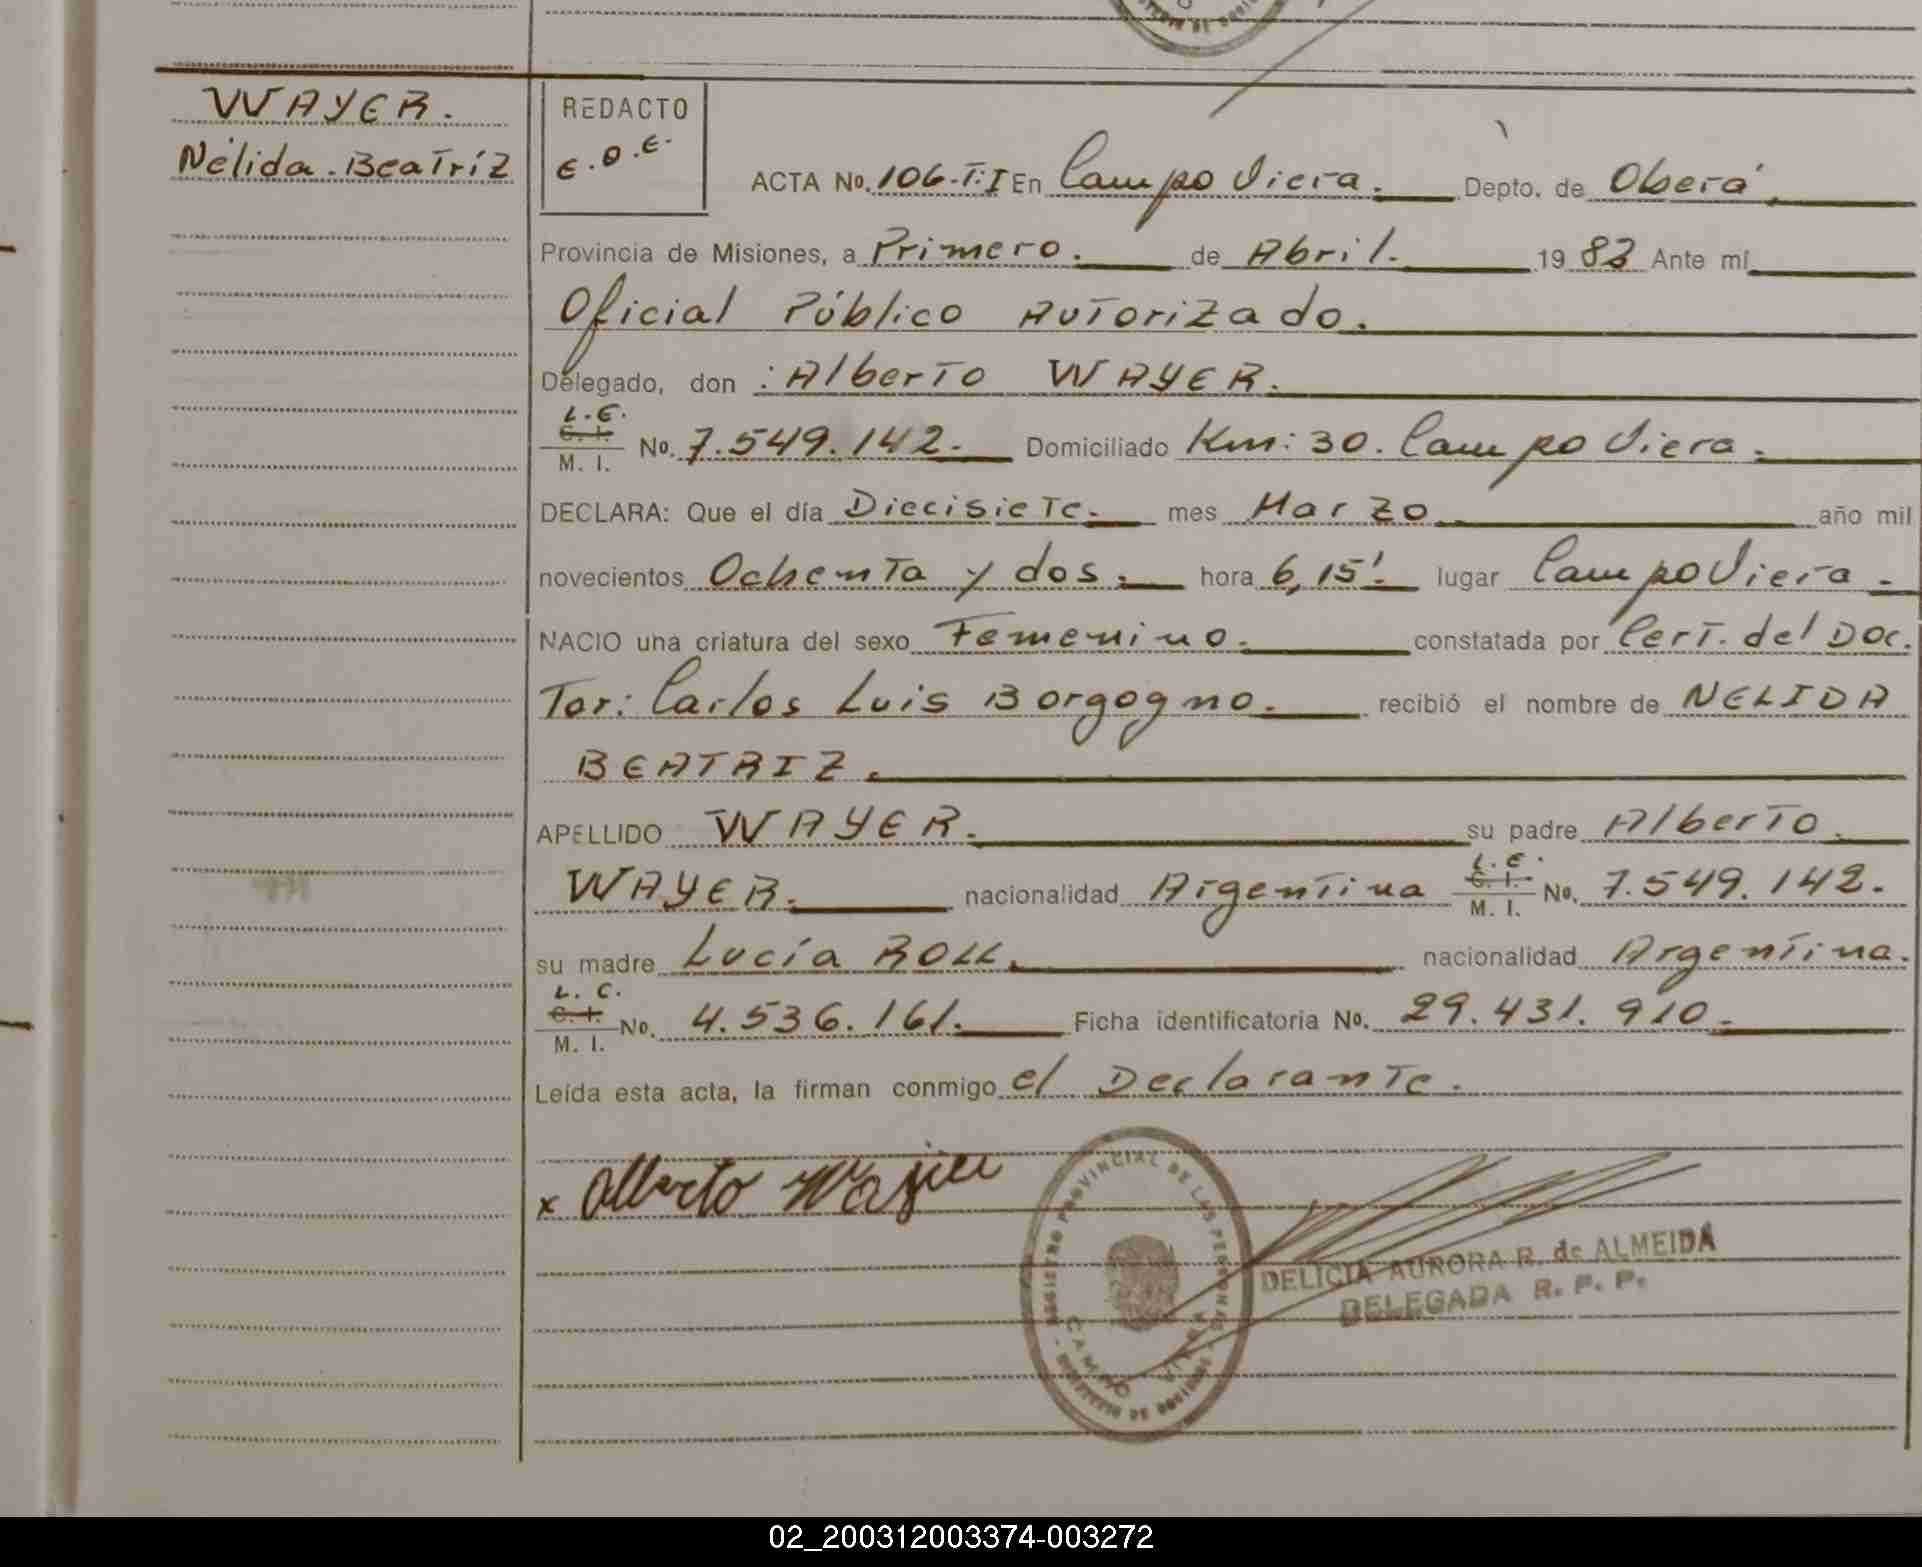 WAYER.
Nélida. Beatríz
REDACTO
E.O.E.
ACTA No. 106-T:I En Campo Viera. Depto. de Oberá
Provincia de Misiones, a Primero. de Abril. 19 82 Ante mí
Oficial Público Autorizado.
Delegado, don : Alberto WAYER.
L.E.
C. I.
M. I. No. 7.549.142.- Domiciliado Km: 30. Campo Viera.
DECLARA: Que el día Diecisiete. mes Marzo año mil
novecientos Ochenta y dos. hora 6,15'. lugar Campo Viera.
NACIO una criatura del sexo Femenino. constatada por Cert. del Doc.
Tor: Carlos Luis Borgogno. recibió el nombre de NELIDA
BEATRIZ.
APELLIDO WAYER. su padre Alberto.
L.E.
C. I.
WAYER. nacionalidad Argentina M. I. No. 7.549.142.
su madre Lucía ROLL. nacionalidad Argentina.
L. C.
C. I.
M. I. No. 4.536.161. Ficha identificatoria No. 29.431.910.
Leída esta acta, la firman conmigo el Declarante.
x Alberto Wayer
REGISTRO PROVINCIAL DE LAS PERSONAS
CAMPO VIERA
DELICIA AURORA R. de ALMEIDA
DELEGADA R. P. P.
02_200312003374-003272